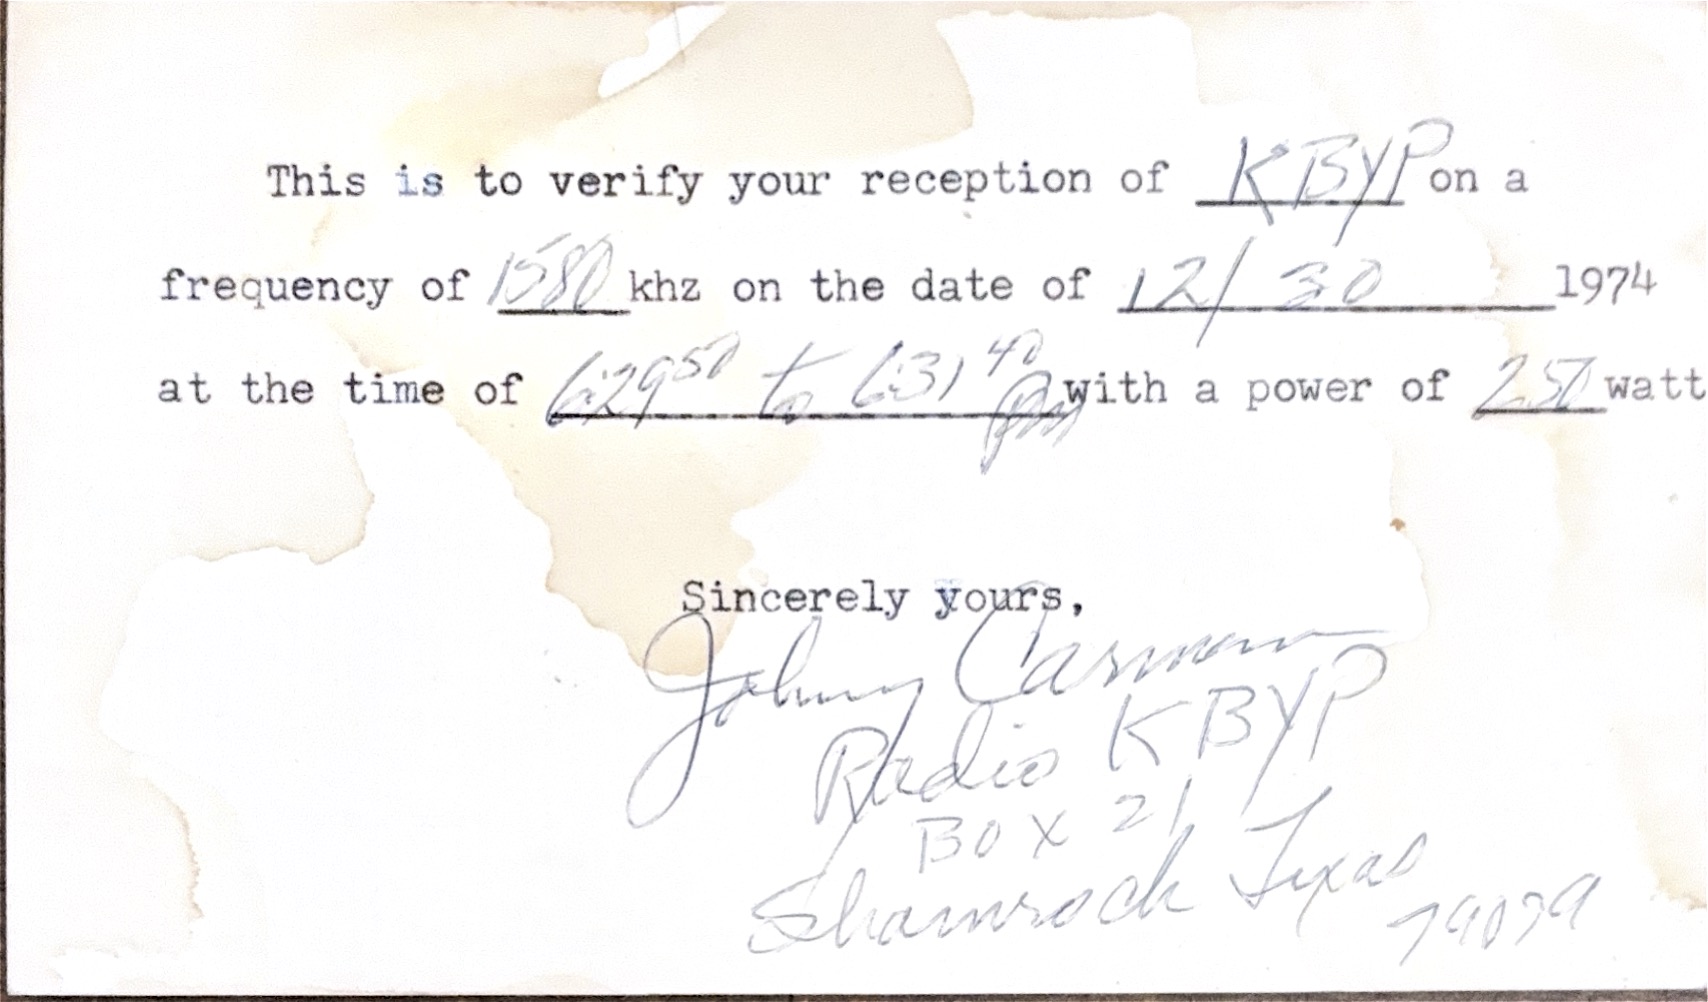 This is to verify your reception of KBYP on a
frequency of 1580 khz on the date of 12/30 1974
at the time of 6:29 50 to 6:31 40 pm with a power of 250 watt
Sincerely yours,
Johnny Carman
Radio KBYP
BOX 21
Shamrock Texas
79079